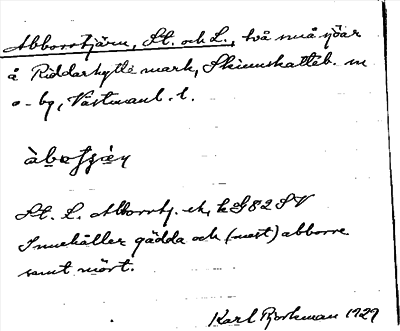 Abborrtjärn, St. och L., två små sjöar
å Riddarhytte mark, Skinnskatteb. sn
o - bg, Västmanl. l.
St. L. Abborrtj. ek. bl 82 SV
Innehåller gädda och (mest) abborre
samt mört.
Karl Bjorkman 1929